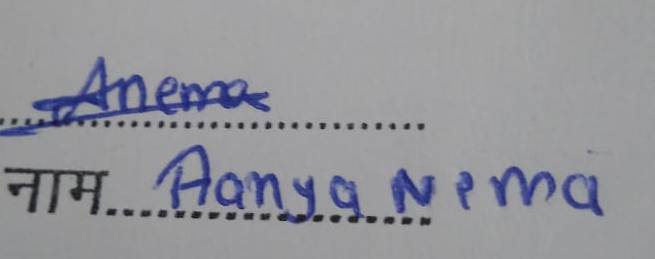 Anema
नाम.. Aanya Nema